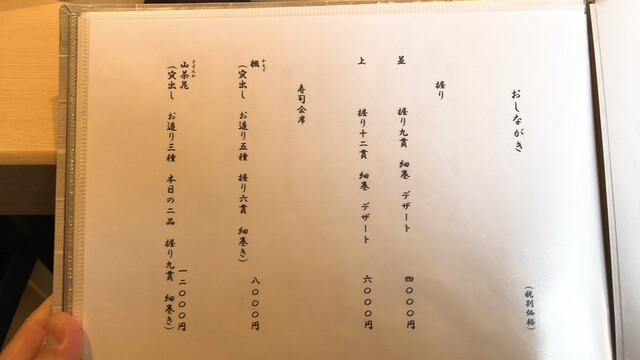 おしながき
(税別価格)
握り
並 握り九貫 細巻 デザート 四〇〇〇円
上 握り十二貫 細巻 デザート 六〇〇〇円
寿司会席
楓 かえで
(突出し お造り五種 握り六貫 細巻き) 八〇〇〇円
山茶花 さざんか
(突出し お造り三種 本日の二品 握り九貫 細巻き) 一二〇〇〇円